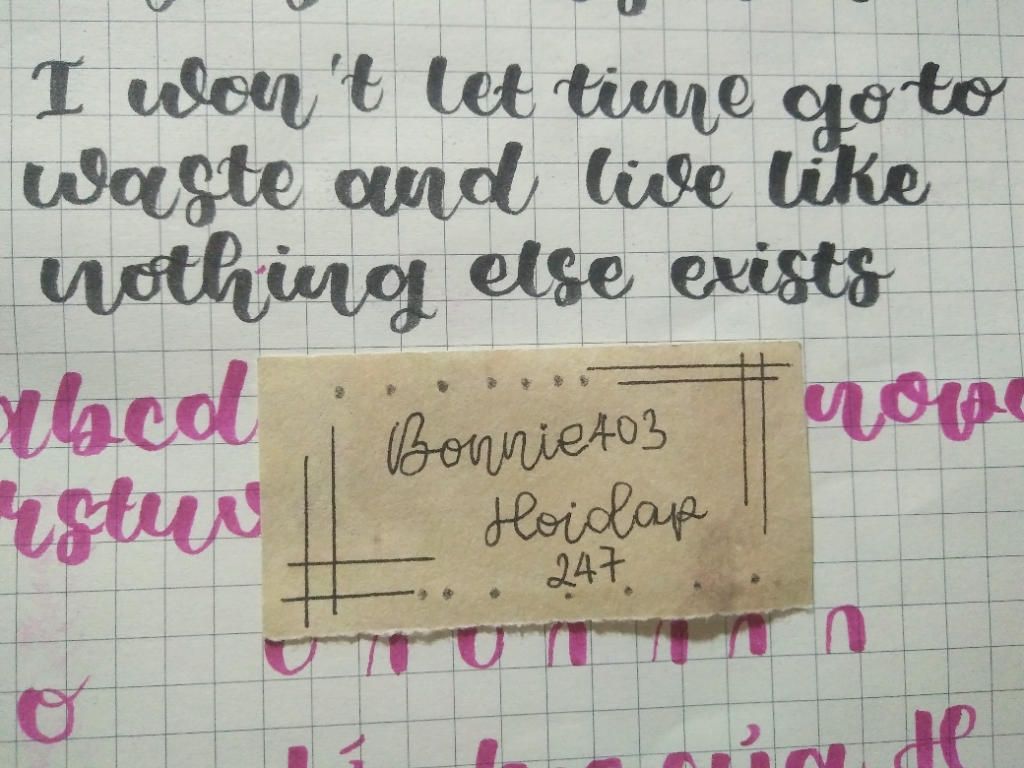 I won't let time go to
waste and live like
nothing else exists
abcd
nop
rstuv
Bonnie403
Hoidap
247
o